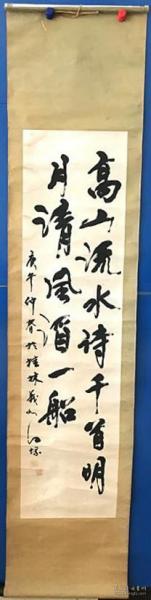 高山流水诗千首明
月清风酒一船
庚午仲春于桂林义山